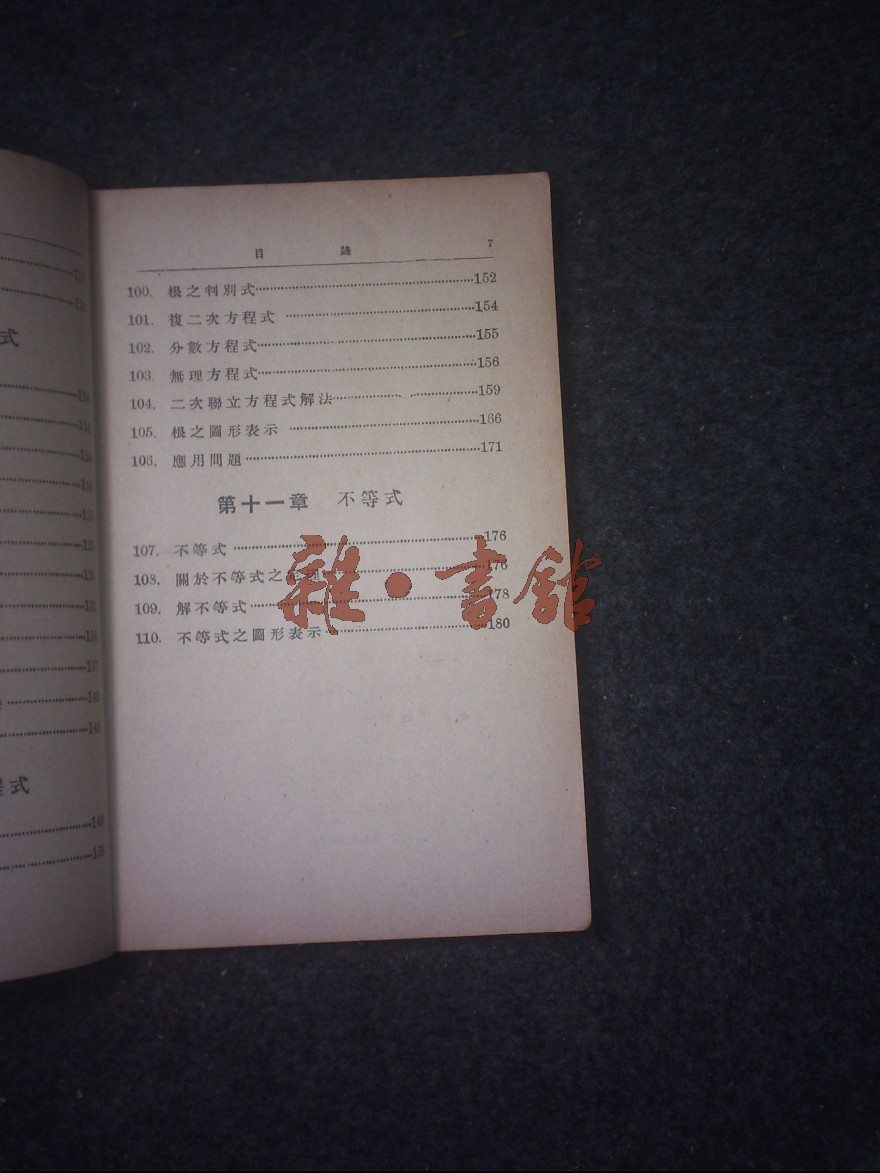 目錄 7
100. 根之判別式 152
101. 複二次方程式 154
102. 分數方程式 155
103. 無理方程式 156
104. 二次聯立方程式解法 159
105. 根之圖形表示 166
106. 應用問題 171
第十一章 不等式
107. 不等式 176
108. 關於不等式之定理 176
109. 解不等式 178
110. 不等式之圖形表示 180
雜·書館
式
程式